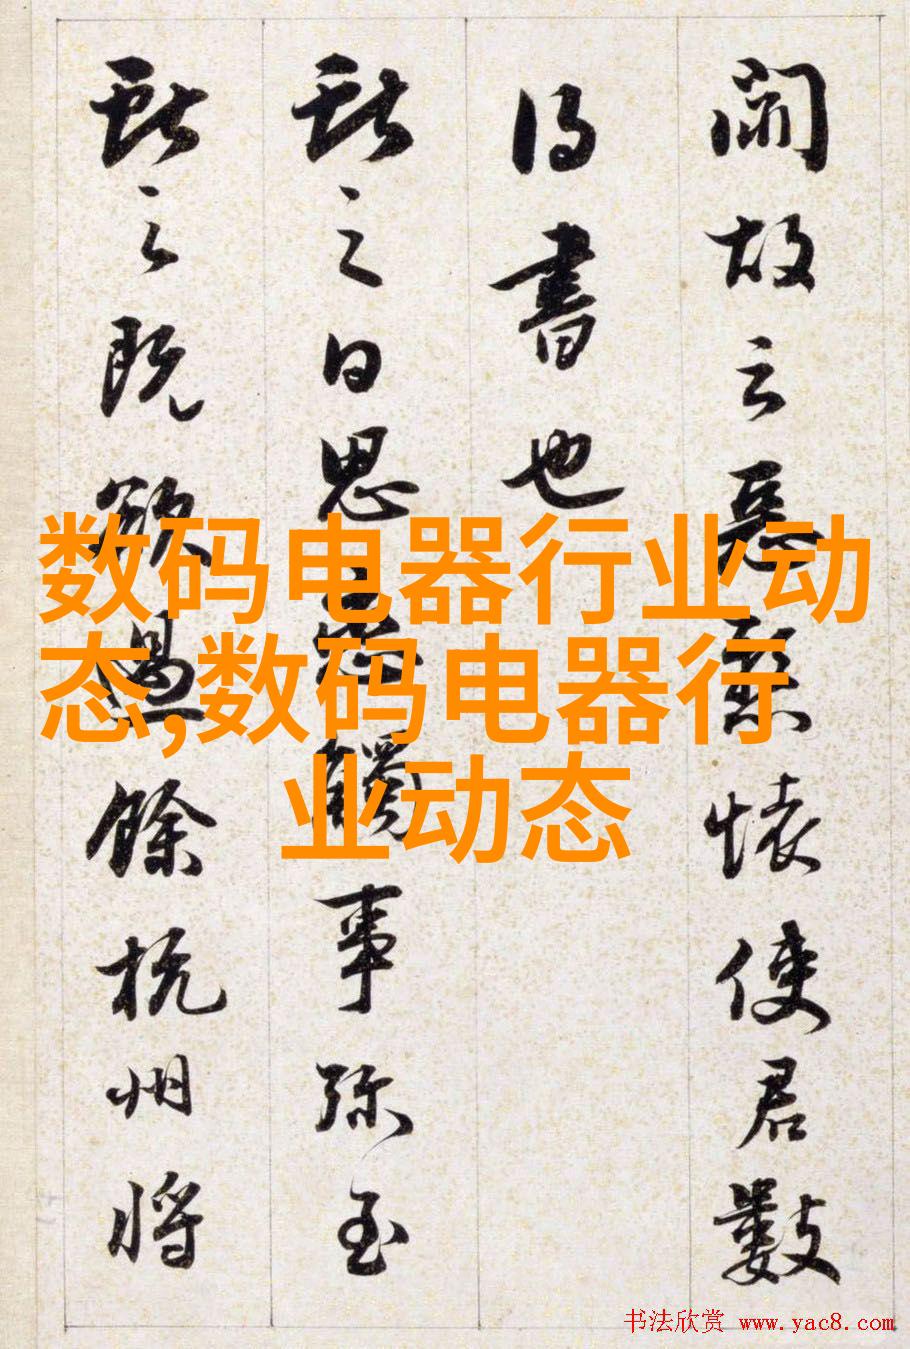 数码电器行业动
态,数码电器行
业动态
故云懷使君數
得書也
之日思觸事弥至
之既欲餘杭州将
书法欣赏 www.yac8.com